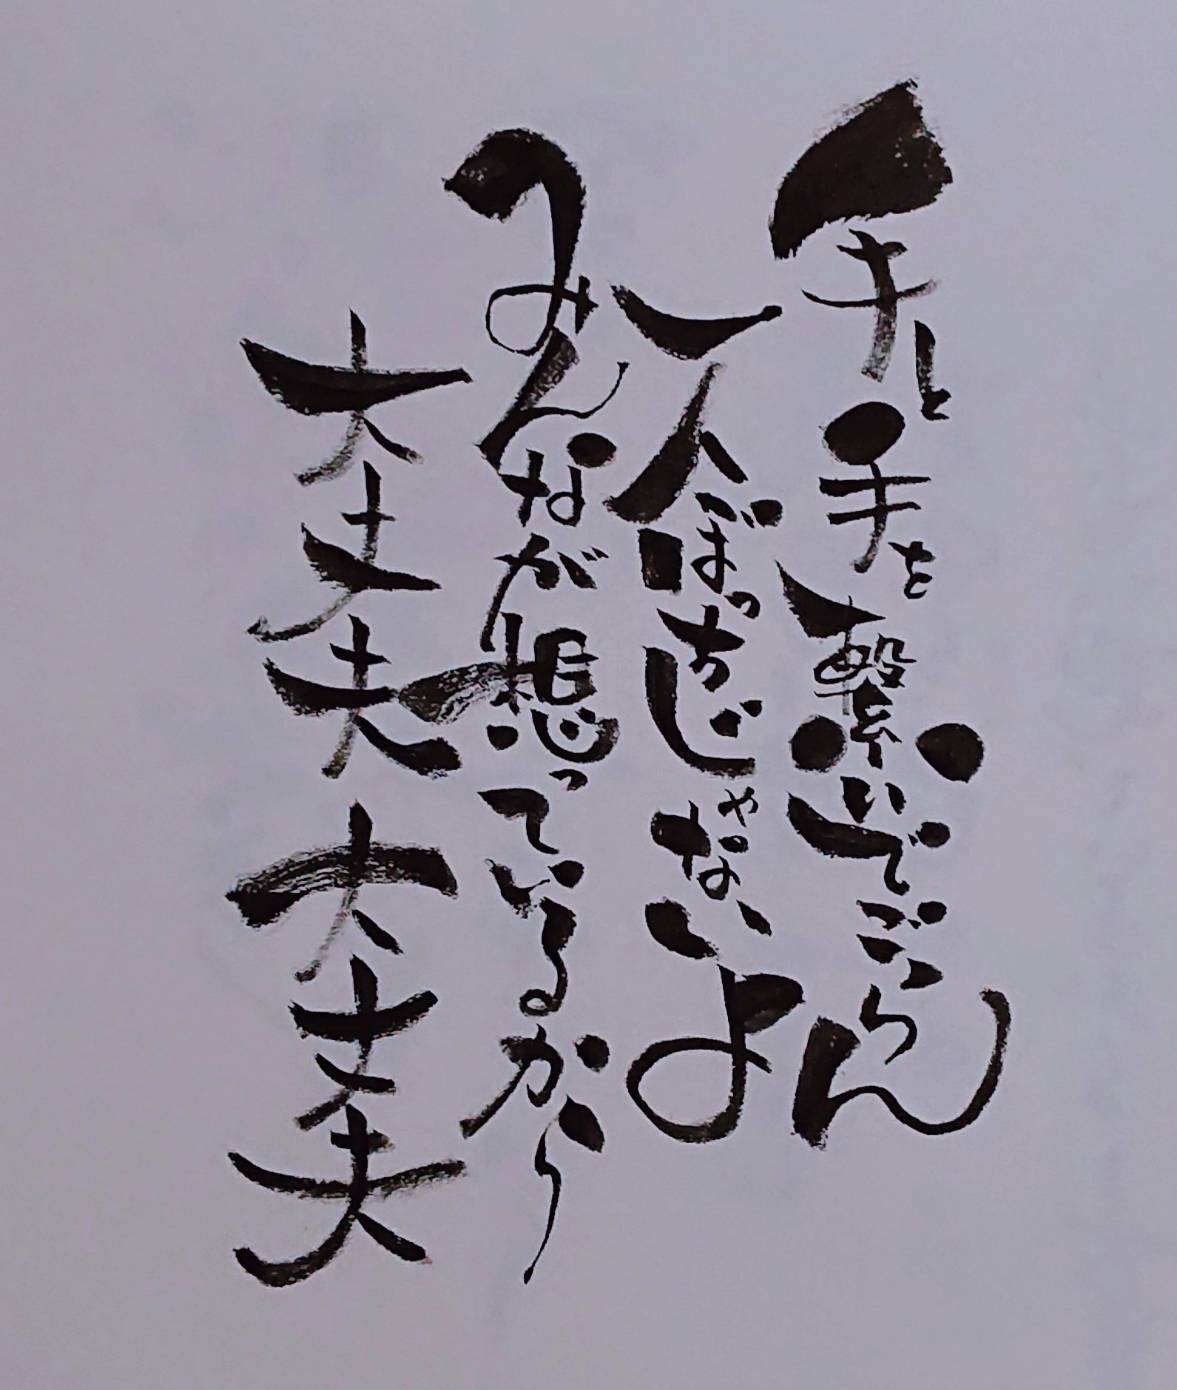 手と手を繋いでごらん
一人ぼっちじゃないよ
みんなが想っているから
大丈夫大丈夫